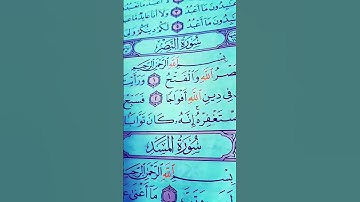 بِدُونَ مَا أَعْبُدُ ۝ وَلَا أَنَا عَابِدٌ مَا
مَا أَعْبُدُ ۝ لَكُمْ دِينُكُمْ وَلِيَ
سُورَةُ النَّصْرِ
بِسْمِ اللَّهِ الرَّحْمَٰنِ الرَّحِيمِ
صْرُ اللَّهِ وَالْفَتْحُ ۝١ وَرَأَيْتَ
فِي دِينِ اللَّهِ أَفْوَاجًا ۝٢ فَسَبِّحْ
سْتَغْفِرْهُ إِنَّهُ كَانَ تَوَّابًا
سُورَةُ المَسَدِ
بِسْمِ اللَّهِ الرَّحْمَٰنِ الرَّحِيمِ
وَتَبَّ ۝١ مَا أَغْنَىٰ عَ